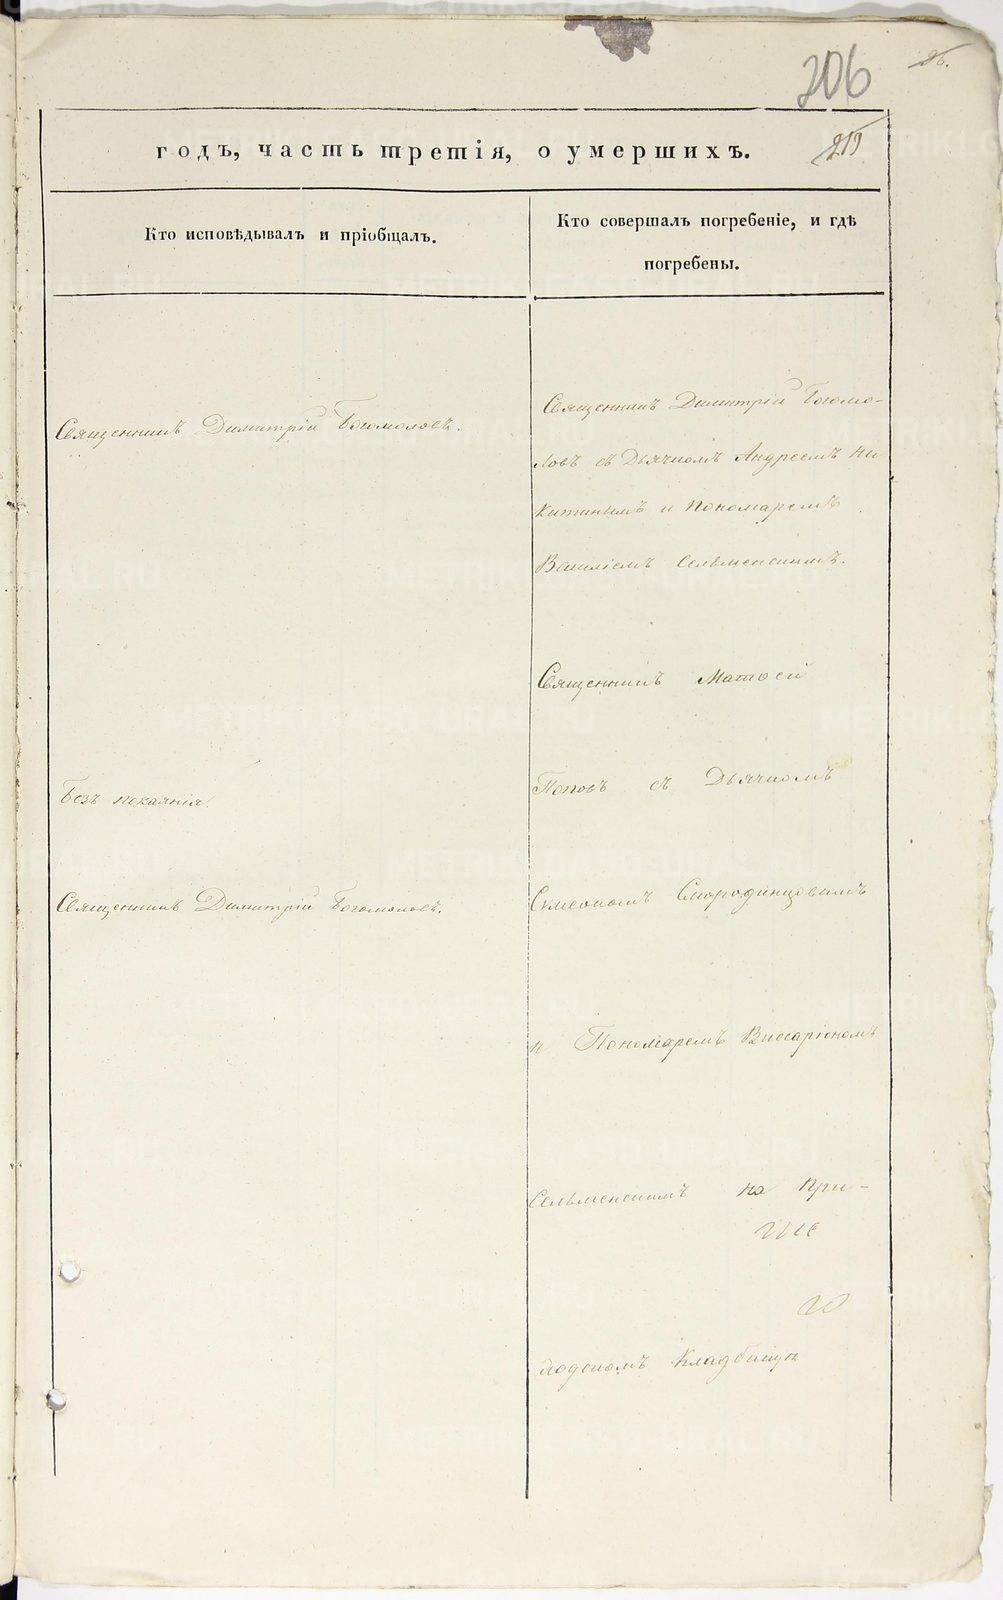 206
26.
219
годъ, часть третія, о умершихъ.
Кто исповѣдывалъ и пріобщалъ.
Кто совершалъ погребеніе, и гдѣ
погребены.
Священникъ Димитрій Богомоловъ.
Священникъ Димитрій Богомо-
ловъ съ Дьячкомъ Андреемъ Ни
китинымъ и Пономаремъ
Василіемъ Сельменскимъ.
Священникъ Матѳей
Безъ покаянія.
Поповъ съ Дьячкомъ
Священникъ Димитрій Богомоловъ.
Симеономъ Смородинцовымъ
и Пономаремъ Виссаріономъ
Сельменскимъ на При-
ходскомъ Кладбищѣ
METRIKI.GASO-URAL.RU